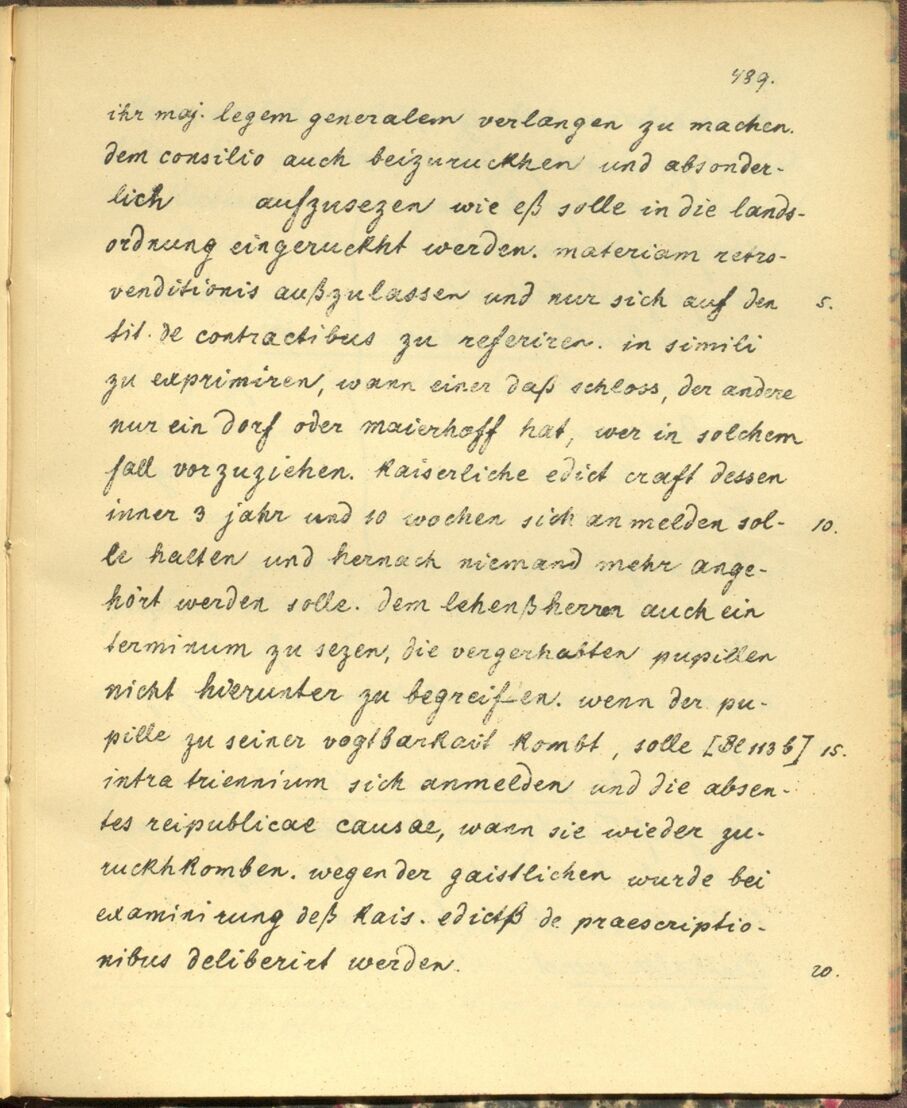 439.
ihr maj. legem generalem verlangen zu machen.
dem consilio auch beizuruckhen und absonder-
lich aufzusezen wie eß solle in die lands-
ordnung eingeruckht werden. materiam retro-
venditionis außzulassen und nur sich auf den 5.
tit. de contractibus zu referiren. in simili
zu exprimiren, wann einer daß schloss, der andere
nur ein dorf oder maierhoff hat, wer in solchem
fall vorzuziehen. kaiserliche edict craft dessen
inner 3 jahr und 10 wochen sich anmelden sol- 10.
le halten und hernach niemand mehr ange-
hört werden solle. dem lehenßherren auch ein
terminum zu sezen, die vergerhabten pupillen
nicht hierunter zu begreiffen. wenn der pu-
pille zu seiner vogtbarkait kombt, solle [Bl 113 b] 15.
intra triennium sich anmelden und die absen-
tes reipublicae causae, wann sie wieder zu-
ruckhkomben. wegen der gaistlichen wurde bei
examinirung deß kais. edictß de praescriptio-
nibus deliberirt werden. 20.